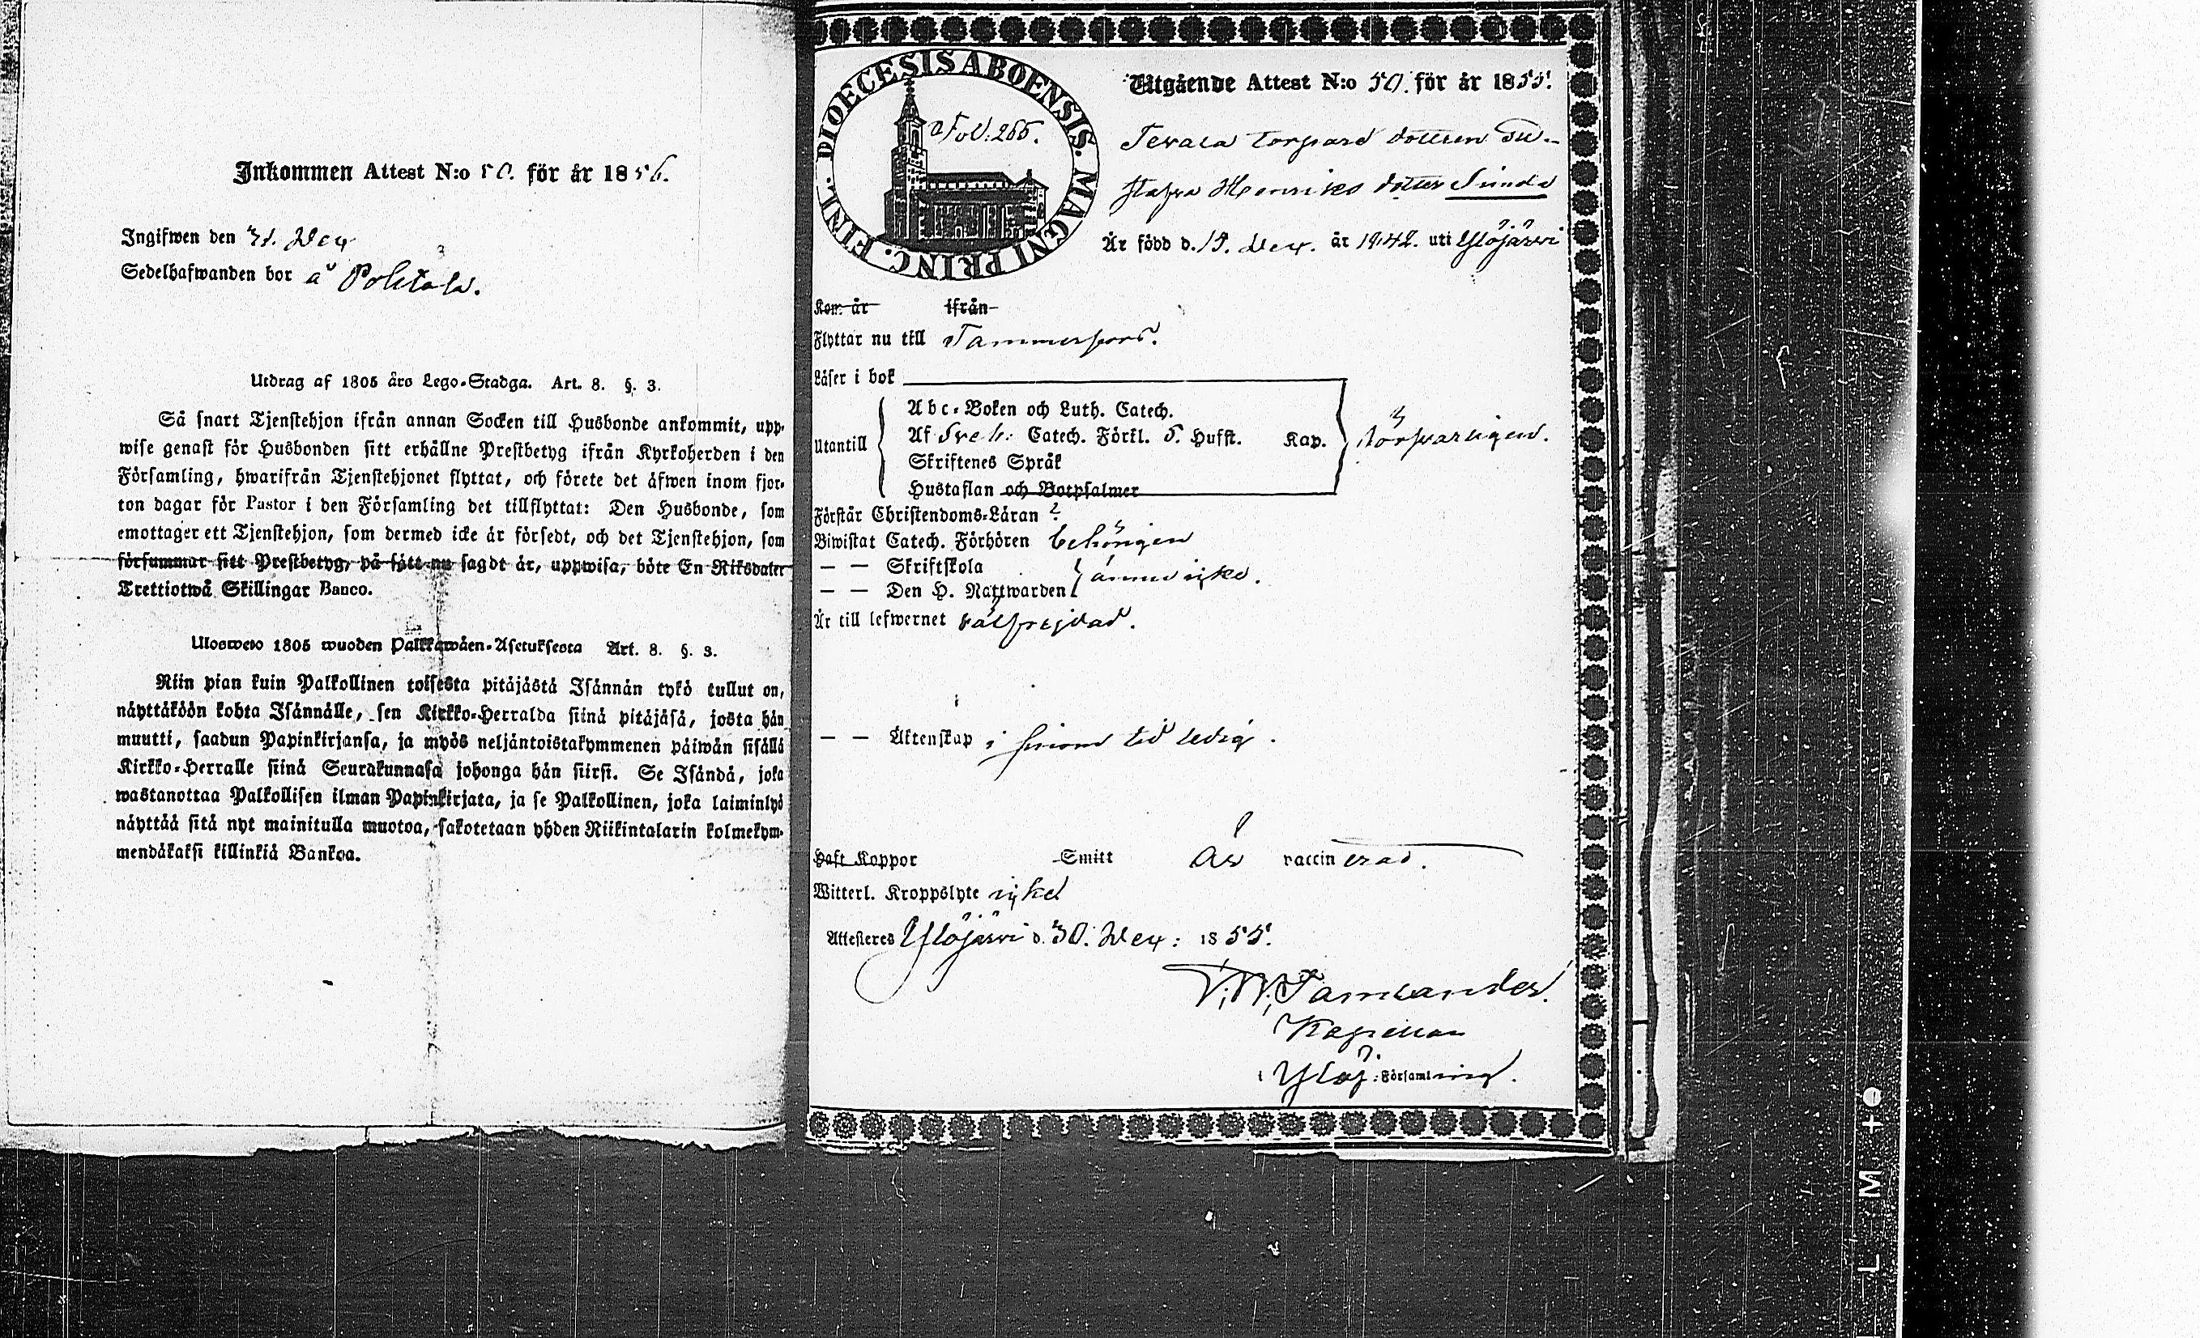 Inkommen Attest N:o 50. för år 1856.
Ingifwen den 31. Dec
Sedelhafwanden bor å Pohtola.
Utdrag af 1805 års Lego-Stadga. Art. 8. §. 3.
Så snart Tjenstehjon ifrån annan Socken till Husbonde ankommit, upp-
wise genast för Husbonden sitt erhållne Prestbetyg ifrån Kyrkoherden i den
Församling, hwarifrån Tjenstehjonet flyttat, och förete det äfwen inom fjor-
ton dagar för Pastor i den Församling det tillflyttat: Den Husbonde, som
emottager ett Tjenstehjon, som dermed icke är försedt, och det Tjenstehjon, som
försummar sitt Prestbetyg, på sätt nu sagdt är, uppwisa, böte En Riksdaler
Trettiotwå Skillingar Banco.
Ulosweto 1805 wuoden Palkkawäen-Asetuksesta Art. 8. §. 3.
Niin pian kuin Palkollinen toisesta pitäjästä Isännän tykö tullut on,
näyttäköön kohta Isännälle, sen Kirkko-Herralda siinä pitäjäsä, josta hän
muutti, saadun Papinkirjansa, ja myös neljäntoistakymmenen päiwän sisällä
Kirkko-Herralle siinä Seurakunnasa johonga hän siirsi. Se Isändä, joka
wastanottaa Palkollisen ilman Papinkirjata, ja se Palkollinen, joka laiminlyö
näyttää sitä nyt mainitulla muotoa, sakotetaan yhden Riikintalarin kolmekym-
mendäkaksi killinkiä Bankoa.
DIOECESIS ABOENSIS. MAGNI PRINC. FINL.
Fol: 266.
Utgående Attest N:o 50. för år 1855.
Torpare dottren Gu-
stafva Henriks dotter
Är född d. 15. Dec. år 1842. uti Ylöjärvi
Kom år ifrån
Flyttar nu till Tammerfors.
Läser i bok
Utantill
Abc-Boken och Luth. Catech.
Af Sveb. Catech. Förkl. 5. Hufst. Kap.
Skriftenes Språk
Hustaflan och Botpsalmer
försvarligen.
Förstår Christendoms-Läran
Biwistat Catech. Förhören behörigen
— — Skriftskola
— — Den H. Nattwarden
ännu icke.
Är till lefwernet välfrejdad.
— — Äktenskap i sinom tid ledig.
Haft Koppor Smitt Är vaccinerad.
Witterl. Kroppslyte icke
Attesteres Ylöjärvi d. 30. Dec: 1855.
Tamlander.
Kapellan
i Ylöj: Församling.